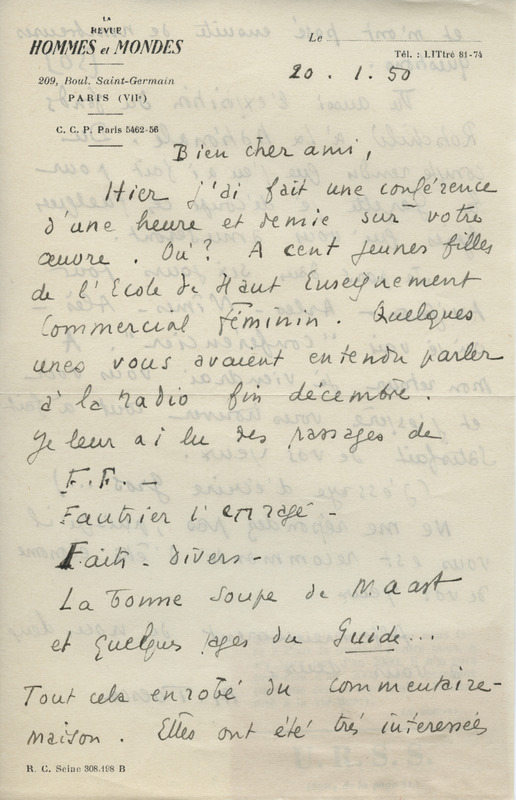 LA
REVUE
HOMMES et MONDES
209, Boul. Saint-Germain
PARIS (VIIe)
C. C. P. Paris 5462-56
Le
Tél. : LITtré 81-74
20 . 1 . 50
Bien cher ami,
Hier j'ai fait une conférence
d'une heure et demie sur votre
œuvre. Où ? A cent jeunes filles
de l'Ecole de Haut Enseignement
Commercial Féminin. Quelques
unes vous avaient entendu parler
à la radio fin décembre.
Je leur ai lu des passages de
F. F. -
Fautrier l'enragé -
Faits - divers -
La bonne soupe de Maast
et quelques pages du Guide...
Tout cela enrobé du commentaire-
maison. Elles ont été très intéressées
R. C. Seine 308.198 B